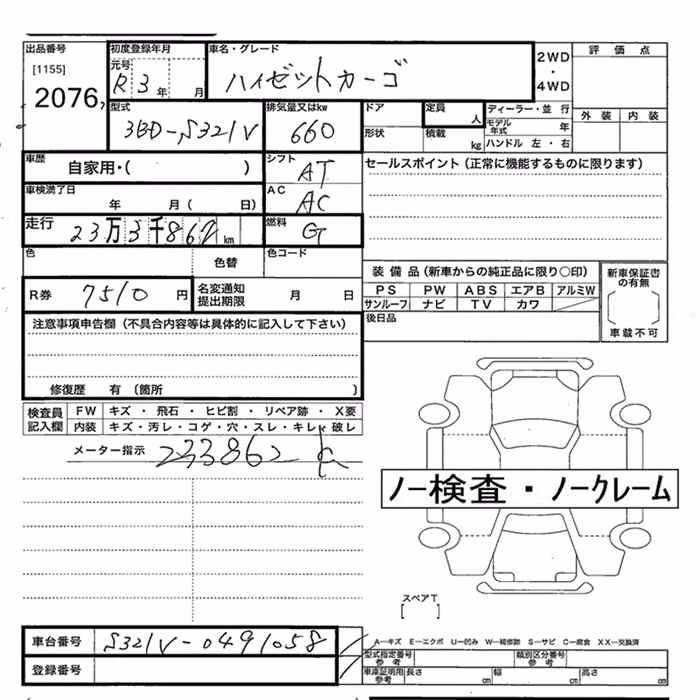 出品番号 初度登録年月 車名・グレード 2WD ・ 4WD 評価点
[1155] 元号
2076 R3年 月 ハイゼットカーゴ
型式 排気量又はkw ドア 定員 人 ディーラー・並 行 外装 内装
3BD-S321V 660 形状 積載 kg モデル年式 年
ハンドル 左・右
車歴 自家用・( ) シフト AT セールスポイント (正常に機能するものに限ります)
車検満了日 年 月( 日) AC AC
走行 23万3千862km 燃料 G
色 色替 色コード
装備品(新車からの純正品に限り○印) 新車保証書の有無
R券 7510円 名変通知提出期限 月 日 PS PW ABS エアB アルミW
サンルーフ ナビ TV カワ
注意事項申告欄 (不具合内容等は具体的に記入して下さい) 後日品 車載不可
修復歴 有 (箇所 )
検査員記入欄 FW キズ・飛石・ヒビ割・リペア跡・X要
内装 キズ・汚レ・コゲ・穴・スレ・キレ・破レ
メーター指示 233862 k
ノー検査・ノークレーム
スペアT
[ ]
車台番号 S321V-0491058 A―キズ E―エクボ U―凹み W―補修跡 S―サビ C―腐食 XX―交換済
登録番号 型式指定番号 参考 類別区分番号 参考
車庫証明用参考 長さ cm 幅 cm 高さ cm